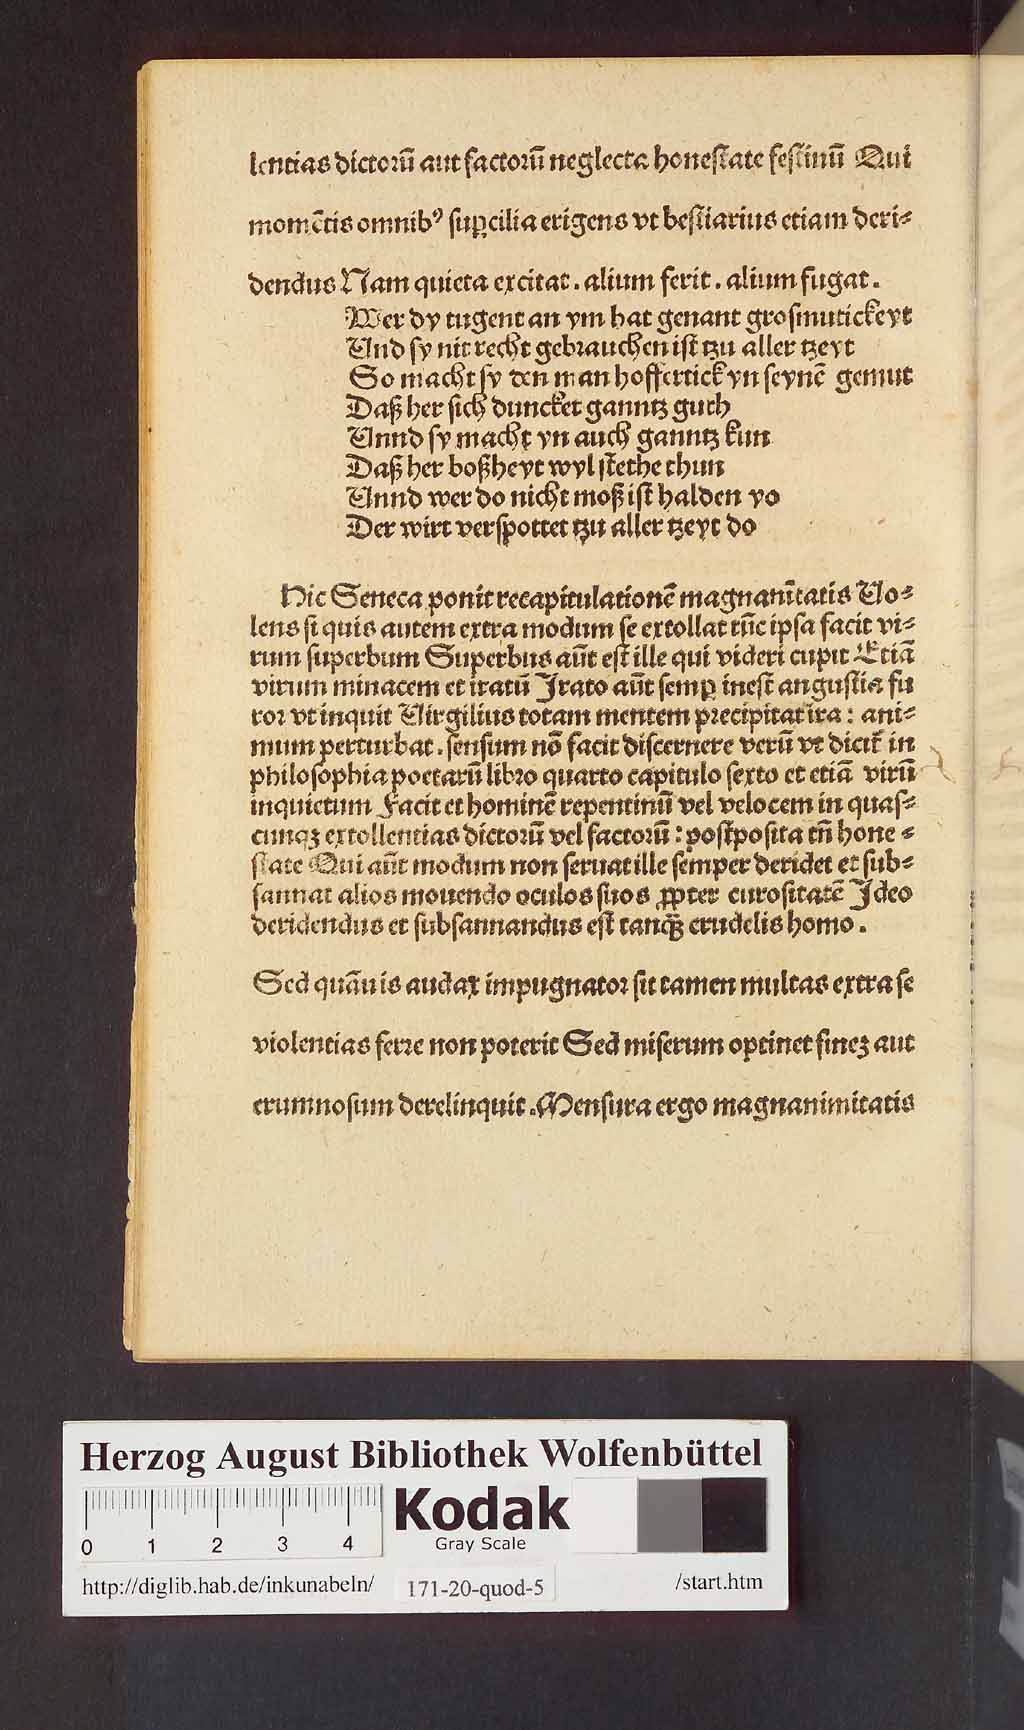 lentias dictorū aut factorū neglecta honestate festinū Qui
momētis omnibꝰ suꝑcilia erigens vt bestiarius etiam deri⸗
dendus Nam quieta excitat . alium ferit . alium fugat .
Wer dy tugent an ym hat genant grosmutickeyt
Vnd sy nit recht gebrauchen ist tzu aller tzeyt
So macht sy den man hoffertick yn seynē gemut
Daß her sich duncket ganntz guth
Vnnd sy macht yn auch ganntz kun
Daß her boßheyt wyl stethe thun
Vnnd wer do nicht moß ist halden yo
Der wirt verspottet tzu aller tzeyt do
Hic Seneca ponit recapitulationē magnanītatis Vo⸗
lens si quis autem extra modum se extollat tūc ipsa facit vi⸗
rum superbum Superbus aūt est ille qui videri cupit Etiā
virum minacem et iratū Irato aūt semꝑ inest angustia fu
ror vt inquit Virgilius totam mentem precipitat ira : ani⸗
mum perturbat . sensum nō facit discernere verū vt dicit᷑ in
philosophia poetarū libro quarto capitulo sexto et etiā virū
inquietum Facit et hominē repentinū vel velocem in quas⸗
cunqꝫ extollentias dictorū vel factorū : postposita tn̄ hone⸗
state Qui aūt modum non seruat ille semper deridet et sub⸗
sannat alios mouendo oculos suos ꝓpter curositatē Ideo
deridendus et subsannandus est tanqꝫ crudelis homo .
Sed quāuis audax impugnator sit tamen multas extra se
violentias ferre non poterit Sed miserum optinet fineꝫ aut
erumnosum derelinquit . Mensura ergo magnanimitatis
Herzog August Bibliothek Wolfenbüttel
Kodak
Gray Scale
0 1 2 3 4
http://diglib.hab.de/inkunabeln/ 171-20-quod-5 /start.htm